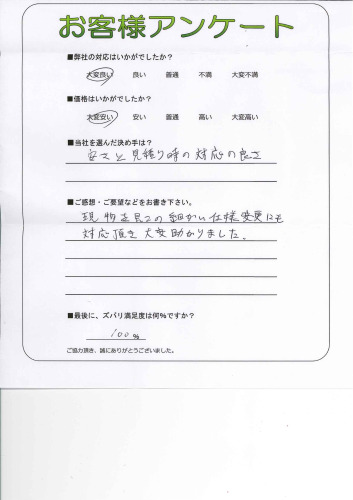 お客様アンケート
■弊社の対応はいかがでしたか?
大変良い 良い 普通 不満 大変不満
■価格はいかがでしたか?
大変安い 安い 普通 高い 大変高い
■当社を選んだ決め手は?
安さと見積り時の対応の良さ
■ご感想・ご要望などをお書き下さい。
現物を見ての細かい仕様変更にも
対応頂き大変助かりました。
■最後に、ズバリ満足度は何%ですか?
100%
ご協力頂き、誠にありがとうございました。